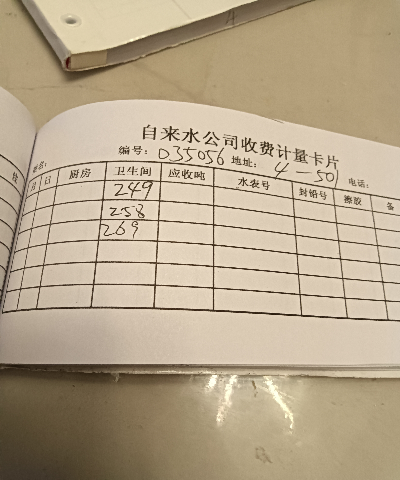 自来水公司收费计量卡片
编号: 035056 地址: 4-501 电话:
姓名:
月 日 厨房 卫生间 应收吨 水表号 封铅号 擦胶 备
249
258
269